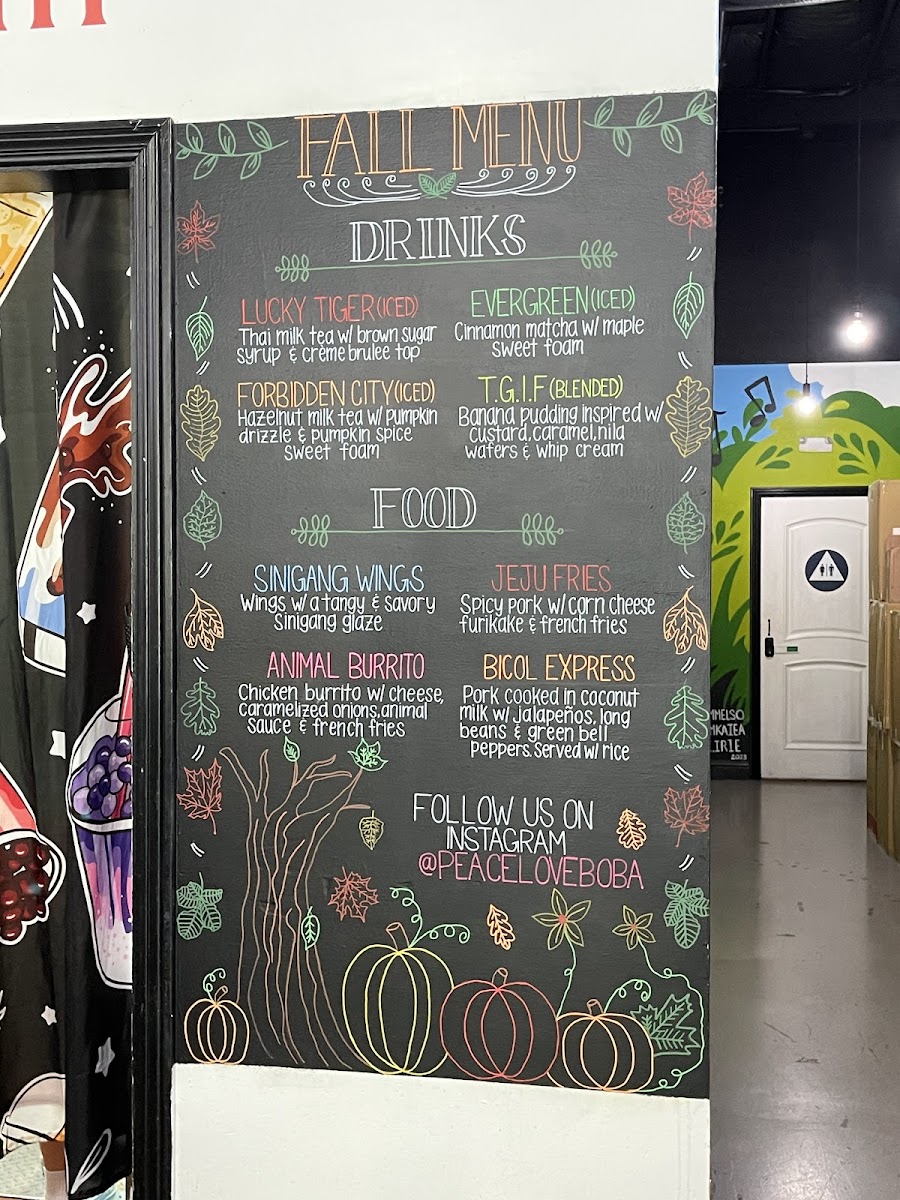 FALL MENU
DRINKS
LUCKY TIGER (ICED)
Thai milk tea w/ brown sugar
syrup & crème brulee top
EVERGREEN (ICED)
Cinnamon matcha w/ maple
sweet foam
FORBIDDEN CITY (ICED)
Hazelnut milk tea w/ pumpkin
drizzle & pumpkin spice
sweet foam
T.G.I.F (BLENDED)
Banana pudding inspired w/
custard, caramel, nila
wafers & whip cream
FOOD
SINIGANG WINGS
Wings w/ a tangy & savory
Sinigang glaze
JEJU FRIES
Spicy pork w/ corn cheese
furikake & french fries
ANIMAL BURRITO
Chicken burrito w/ cheese,
caramelized onions, animal
sauce & french fries
BICOL EXPRESS
Pork cooked in coconut
milk w/ Jalapeños, long
beans & green bell
Peppers. Served w/ rice
FOLLOW US ON
INSTAGRAM
@PEACELOVEBOBA
2023